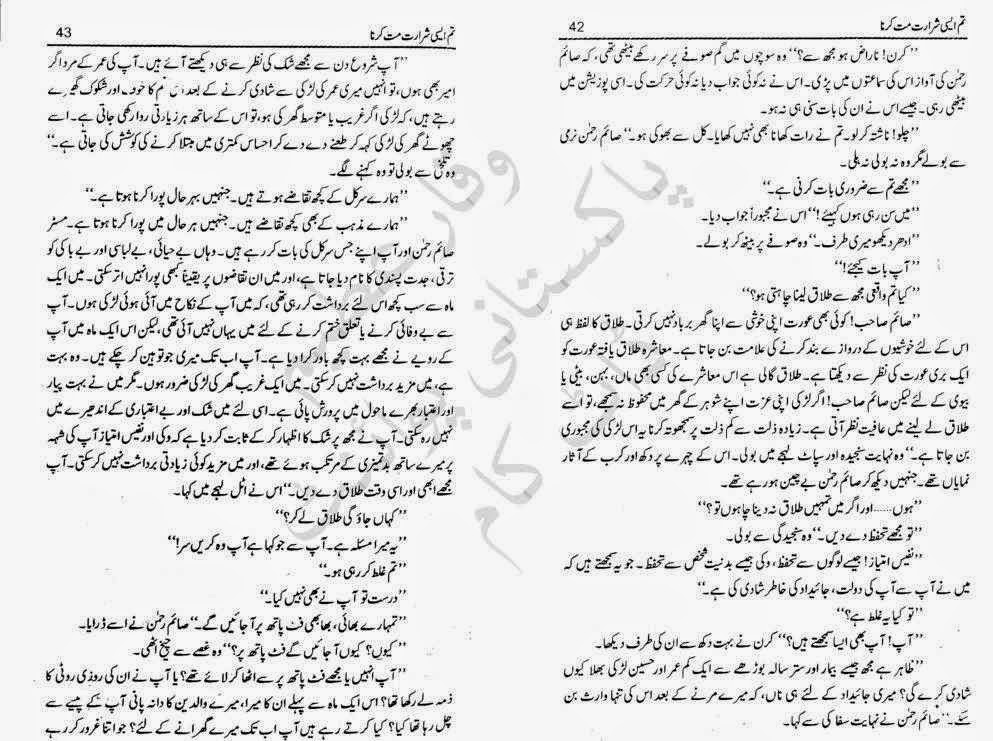 تم ایسی شرارت مت کرنا 42
’’کرن! ناراض ہو مجھ سے؟‘‘ وہ سوچوں میں گم صوفے پر سر رکھے بیٹھی تھی، کہ صائم
رحمٰن کی آواز اس کی سماعتوں میں پڑی۔ اس نے نہ کوئی جواب دیا نہ کوئی حرکت کی۔ اسی پوزیشن میں
بیٹھی رہی۔ جیسے اس نے ان کی بات سنی ہی نہ ہو۔
’’چلو! ناشتہ کر لو۔ تم نے رات کھانا بھی نہیں کھایا۔ کل سے بھوکی ہو۔‘‘ صائم رحمٰن نرمی
سے بولے مگر وہ نہ بولی نہ ہلی۔
’’مجھے تم سے ضروری بات کرنی ہے۔‘‘
’’میں سن رہی ہوں کہیئے!‘‘ اس نے مجبوراً جواب دیا۔
’’ادھر دیکھو میری طرف۔‘‘ وہ صوفے پر بیٹھ کر بولے۔
’’آپ بات کیجئے!‘‘
’’کیا تم واقعی مجھ سے طلاق لینا چاہتی ہو؟‘‘
’’صائم صاحب! کوئی بھی عورت اپنی خوشی سے اپنا گھر برباد نہیں کرتی۔ طلاق کا لفظ ہی
اس کے لئے خوشیوں کے دروازے بند کرنے کی علامت بن جاتا ہے۔ معاشرہ طلاق یافتہ عورت کو
ایک بری عورت کی نظر سے دیکھتا ہے۔ طلاق گالی ہے اس معاشرے کی کسی بھی ماں، بہن، بیٹی یا
بیوی کے لئے لیکن صائم صاحب! اگر لڑکی اپنی عزت اپنے شوہر کے گھر میں محفوظ نہ سمجھے، تو اسے
طلاق لے لینے میں عافیت نظر آتی ہے۔ زیادہ ذلت سے کم ذلت پر سمجھوتہ کرنا یہ اس لڑکی کی مجبوری
بن جاتا ہے۔‘‘ وہ نہایت سنجیدہ اور سپاٹ لہجے میں بولی۔ اس کے چہرے پر دکھ اور کرب کے آثار
نمایاں تھے۔ جنہیں دیکھ کر صائم رحمٰن بے چین ہو رہے تھے۔
’’ہوں......اور اگر میں تمہیں طلاق نہ دینا چاہوں تو؟‘‘
’’تو مجھے تحفظ دے دیں۔‘‘ وہ سنجیدگی سے بولی۔
’’نفیس امتیاز! جیسے لوگوں سے تحفظ، وکی جیسے بدنیت شخص سے تحفظ۔ جو یہ سمجھتے ہیں کہ
میں نے آپ سے آپ کی دولت، جائیداد کی خاطر شادی کی ہے۔‘‘
’’تو کیا یہ غلط ہے؟‘‘
’’آپ! آپ بھی ایسا سمجھتے ہیں؟‘‘ کرن نے بہت دکھ سے ان کی طرف دیکھا۔
’’ظاہر ہے مجھ جیسے بیمار اور ستر سالہ بوڑھے سے ایک کم عمر اور حسین لڑکی بھلا کیوں
شادی کرے گی؟ میری جائیداد کے لئے ہی ناں، کہ میرے مرنے کے بعد اس کی تنہا وارث بن
سکے۔‘‘ صائم رحمٰن نے نہایت سفاکی سے کہا۔
تم ایسی شرارت مت کرنا 43
’’آپ شروع دن سے مجھے شک کی نظر سے ہی دیکھتے آئے ہیں۔ آپ کی عمر کے مرد اگر
امیر بھی ہوں، تو انہیں میری عمر کی لڑکی سے شادی کرنے کے بعد اس کا خوف اور شکوک گھیرے
رہتے ہیں، کہ لڑکی اگر غریب یا متوسط گھر کی ہو، تو اس کے ساتھ ہر زیادتی روا رکھی جاتی ہے۔ اسے
چھوٹے گھر کی لڑکی کہہ کر طعنے دے دے کر احساس کمتری میں مبتلا کرنے کی کوشش کی جاتی ہے۔‘‘
وہ تلخی سے بولی تو وہ کہنے لگے۔
’’ہمارے سرکل کے کچھ تقاضے ہوتے ہیں۔ جنہیں بہر حال پورا کرنا ہوتا ہے۔‘‘
’’ہمارے مذہب کے بھی کچھ تقاضے ہیں۔ جنہیں ہر حال میں پورا کرنا ہوتا ہے۔ مسٹر
صائم رحمٰن اور آپ اپنے جس سرکل کی بات کر رہے ہیں۔ وہاں بے حیائی، بے لباسی اور بے باکی کو
ترقی، جدت پسندی کا نام دیا جاتا ہے، اور میں ان تقاضوں پر یقیناً کبھی پورا نہیں اتر سکتی۔ میں ایک
ماہ سے سب کچھ اس لئے برداشت کر رہی تھی، کہ میں آپ کے نکاح میں آئی ہوئی لڑکی ہوں۔ آپ
سے بے وفائی کرنے یا تعلق ختم کرنے کے لئے میں یہاں نہیں آئی تھی، لیکن اس ایک ماہ میں آپ
کے رویے نے مجھے بہت کچھ باور کرا دیا ہے۔ آپ اب تک میری جو توہین کر چکے ہیں۔ وہ بہت
ہے، میں مزید برداشت نہیں کر سکتی۔ میں ایک غریب گھر کی لڑکی ضرور ہوں۔ مگر میں نے بہت پیار
اور اعتبار بھرے ماحول میں پرورش پائی ہے۔ اسی لئے میں شک اور بے اعتباری کے اندھیرے میں
نہیں رہ سکتی۔ آپ نے مجھ پر شک کا اظہار کر کے ثابت کر دیا ہے کہ وکی اور نفیس امتیاز آپ کی شہہ
پر میرے ساتھ بدتمیزی کے مرتکب ہوئے تھے، اور میں مزید کوئی زیادتی برداشت نہیں کر سکتی۔ آپ
مجھے ابھی اور اسی وقت طلاق دے دیں۔‘‘ اس نے اٹل لہجے میں کہا۔
’’کہاں جاؤ گی طلاق لے کر؟‘‘
’’یہ میرا مسئلہ ہے۔ آپ سے جو کہا ہے آپ وہ کریں سر!‘‘
’’تم غلط کر رہی ہو۔‘‘
’’درست تو آپ نے بھی نہیں کیا۔‘‘
’’تمہارے بھائی، بھابھی فٹ پاتھ پر آ جائیں گے۔‘‘ صائم رحمٰن نے اسے ڈرایا۔
’’کیوں؟ کیوں آ جائیں گے فٹ پاتھ پر؟‘‘ وہ غصے سے چیخ اٹھی۔
’’آپ انہیں یا مجھے فٹ پاتھ پر سے اٹھا کر لائے تھے؟ یا آپ نے ان کی روزی روٹی کا
ذمہ لے رکھا تھا؟ اس ایک ماہ سے پہلے ان کا میرا، میرے والدین کا دانہ پانی آپ کے پیسے سے
چل رہا تھا کیا؟ کیا کرتے رہے ہیں آپ اب تک میرے گھرانے کے لئے؟ جو اتنا غرور کر رہے
پاکستانی پوائنٹ
کام